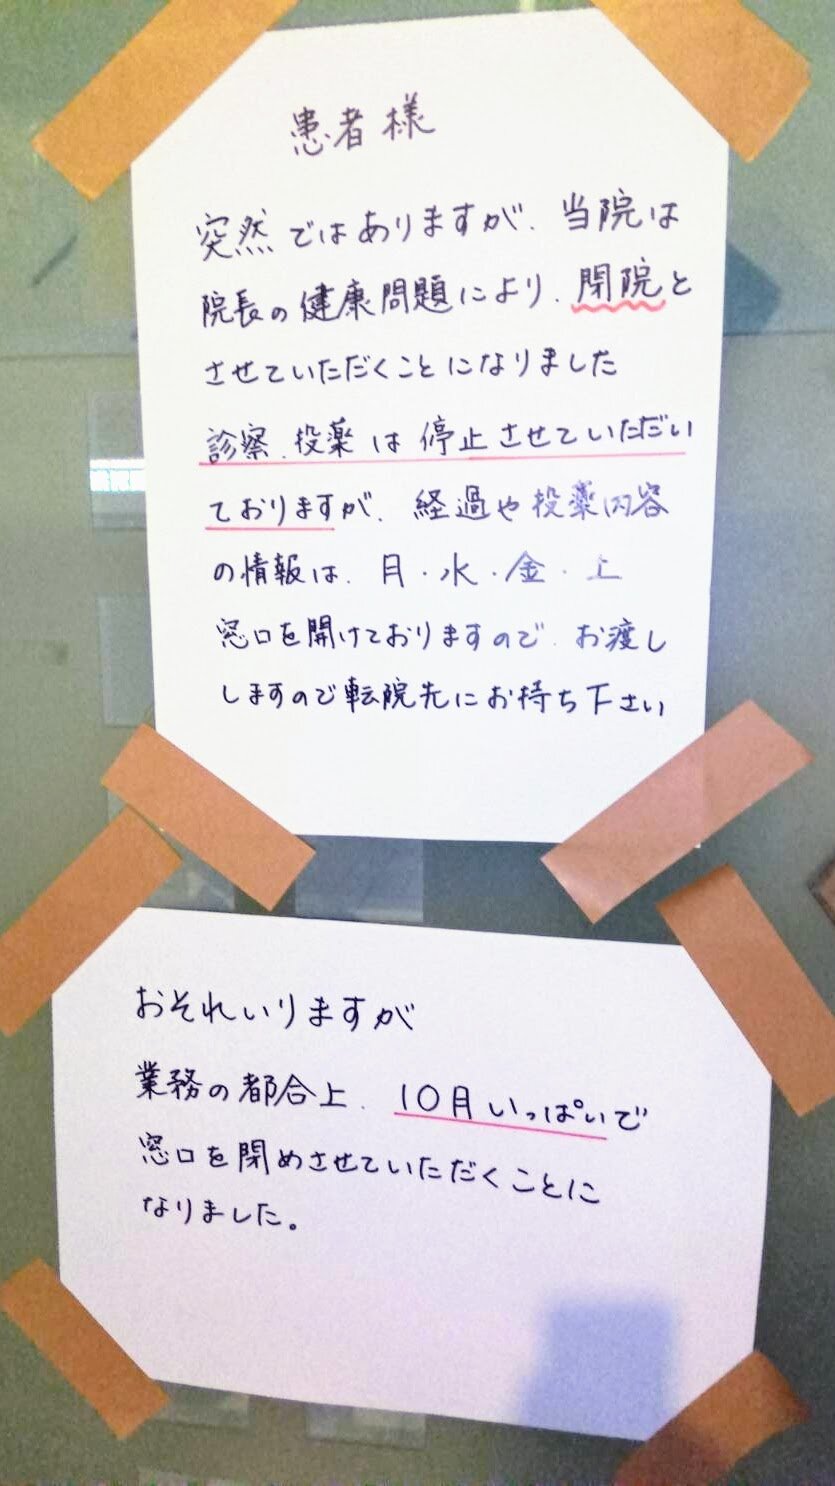 患者様
突然ではありますが、当院は
院長の健康問題により、閉院と
させていただくことになりました
診察、投薬は停止させていただい
ておりますが、経過や投薬内容
の情報は、月・水・金・土
窓口を開けておりますので、お渡し
しますので転院先にお持ち下さい
おそれいりますが
業務の都合上、10月いっぱいで
窓口を閉めさせていただくことに
なりました。